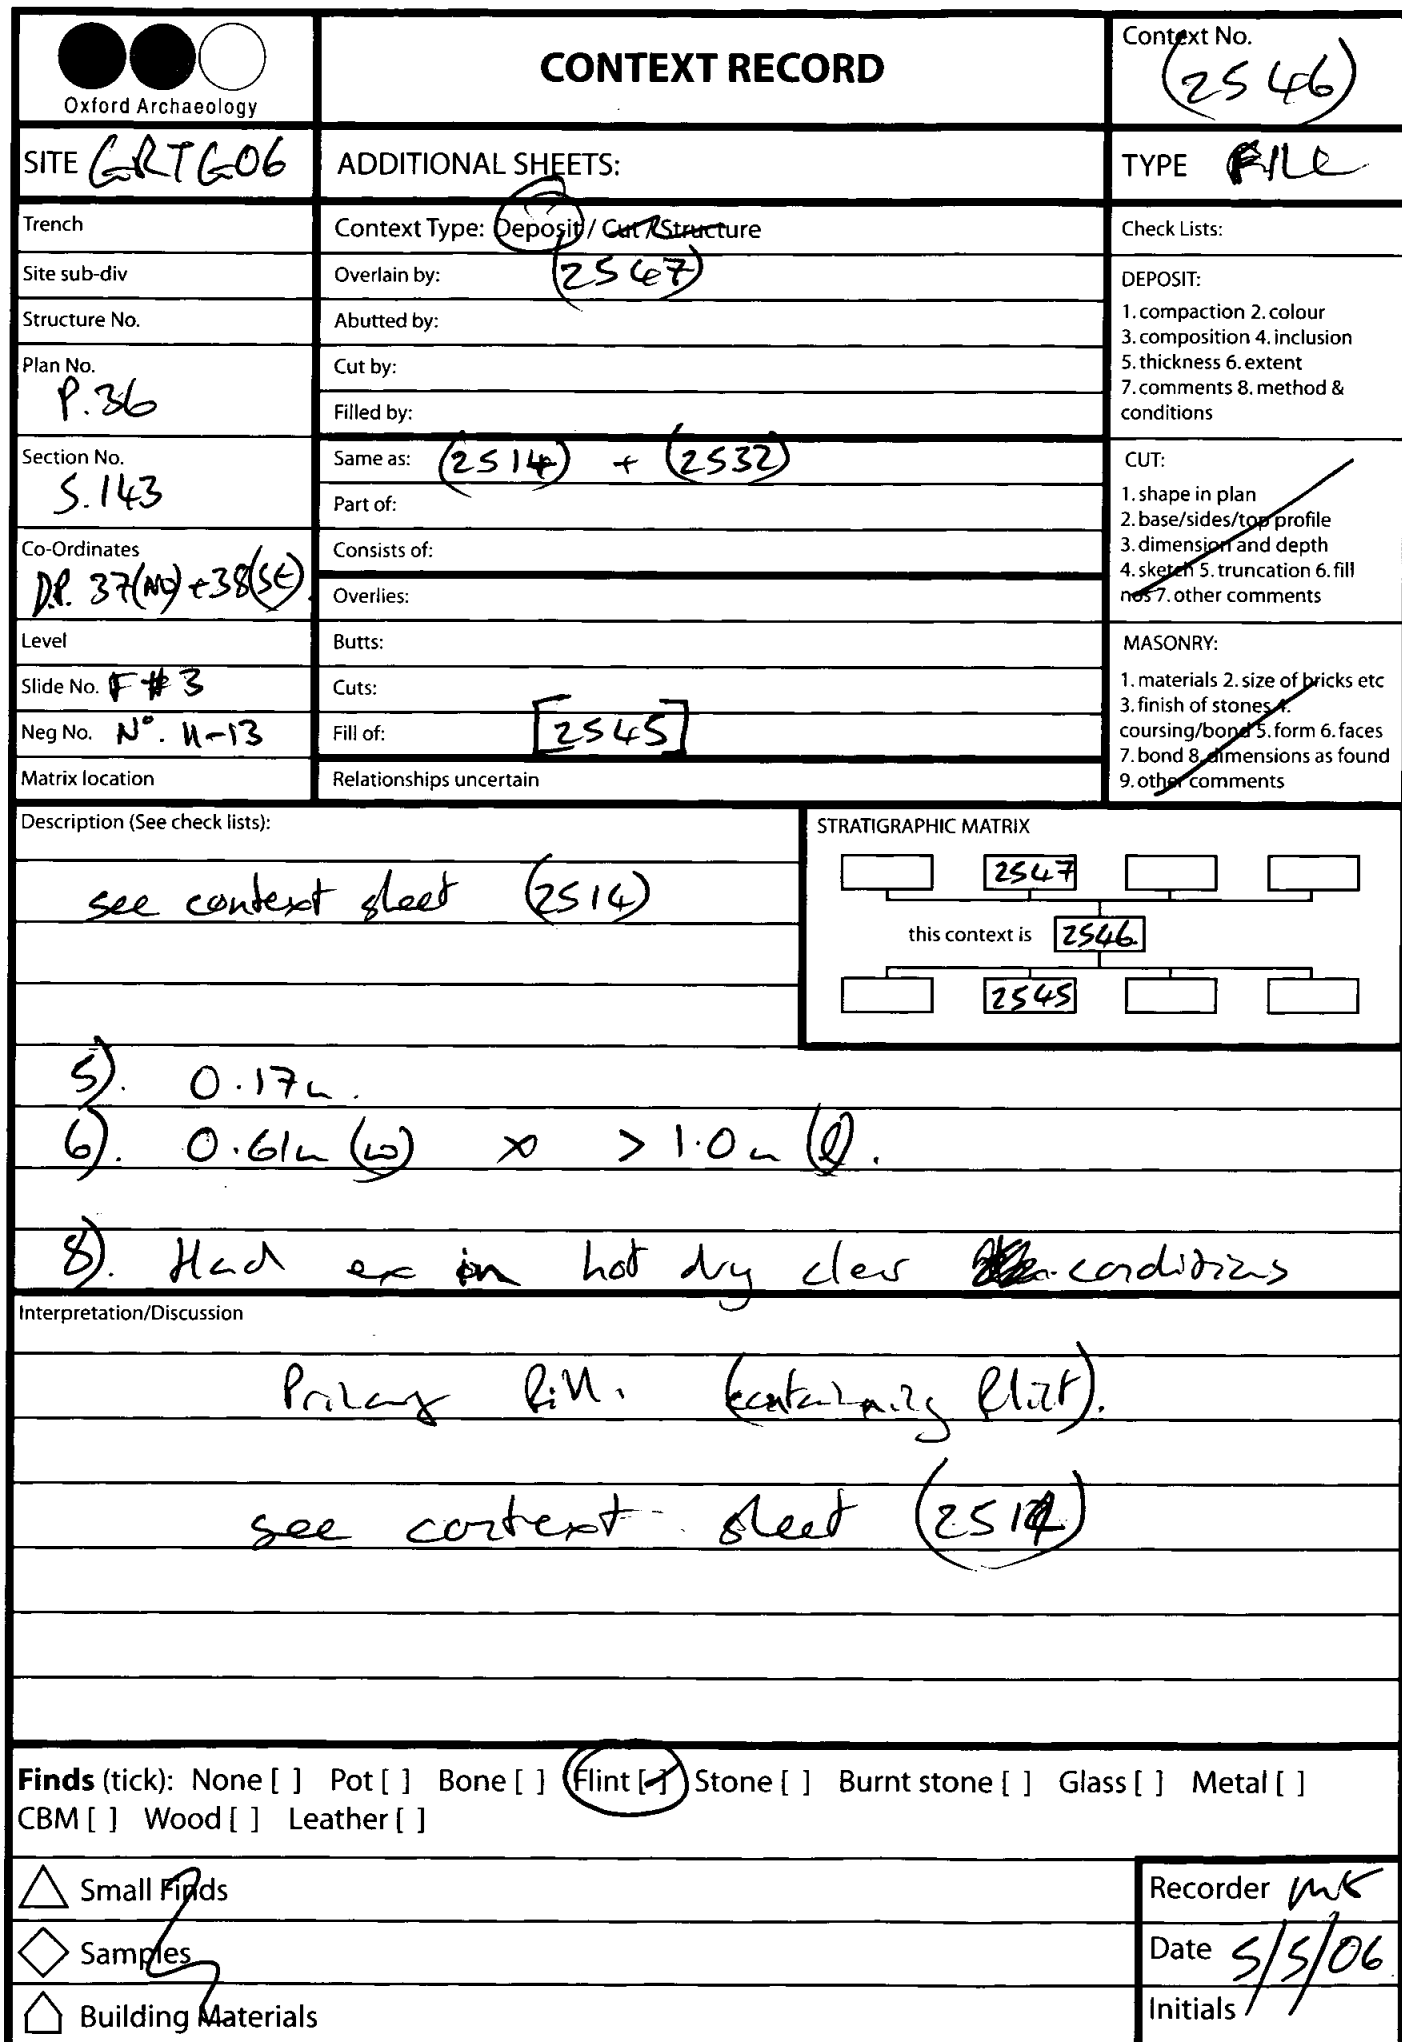 Oxford Archaeology
CONTEXT RECORD
Context No.
(2546)
SITE GRTG06
ADDITIONAL SHEETS:
TYPE FILL
Trench
Site sub-div
Structure No.
Plan No.
P.36
Section No.
S.143
Co-Ordinates
D.P. 37(NW)+38(SE).
Level
Slide No. F#3
Neg No. No. 11-13
Matrix location
Context Type: Deposit / Cut / Structure
Overlain by: (2547)
Abutted by:
Cut by:
Filled by:
Same as: (2514) + (2532)
Part of:
Consists of:
Overlies:
Butts:
Cuts:
Fill of: [2545]
Relationships uncertain
Check Lists:
DEPOSIT:
1. compaction 2. colour
3. composition 4. inclusion
5. thickness 6. extent
7. comments 8. method &
conditions
CUT:
1. shape in plan
2. base/sides/top profile
3. dimension and depth
4. sketch 5. truncation 6. fill
nos 7. other comments
MASONRY:
1. materials 2. size of bricks etc
3. finish of stones 4.
coursing/bond 5. form 6. faces
7. bond 8. dimensions as found
9. other comments
Description (See check lists):
see context sheet (2514)
STRATIGRAPHIC MATRIX
2547
this context is 2546
2545
5). 0.17m.
6). 0.61m (w) x >1.0m (l).
8). Hand ex in hot dry clear conditions
Interpretation/Discussion
Primary fill. (containing flint).
see context sheet (2514)
Finds (tick): None [ ] Pot [ ] Bone [ ] Flint [✓] Stone [ ] Burnt stone [ ] Glass [ ] Metal [ ]
CBM [ ] Wood [ ] Leather [ ]
Small Finds
Samples
Building Materials
Recorder
Date 5/5/06
Initials